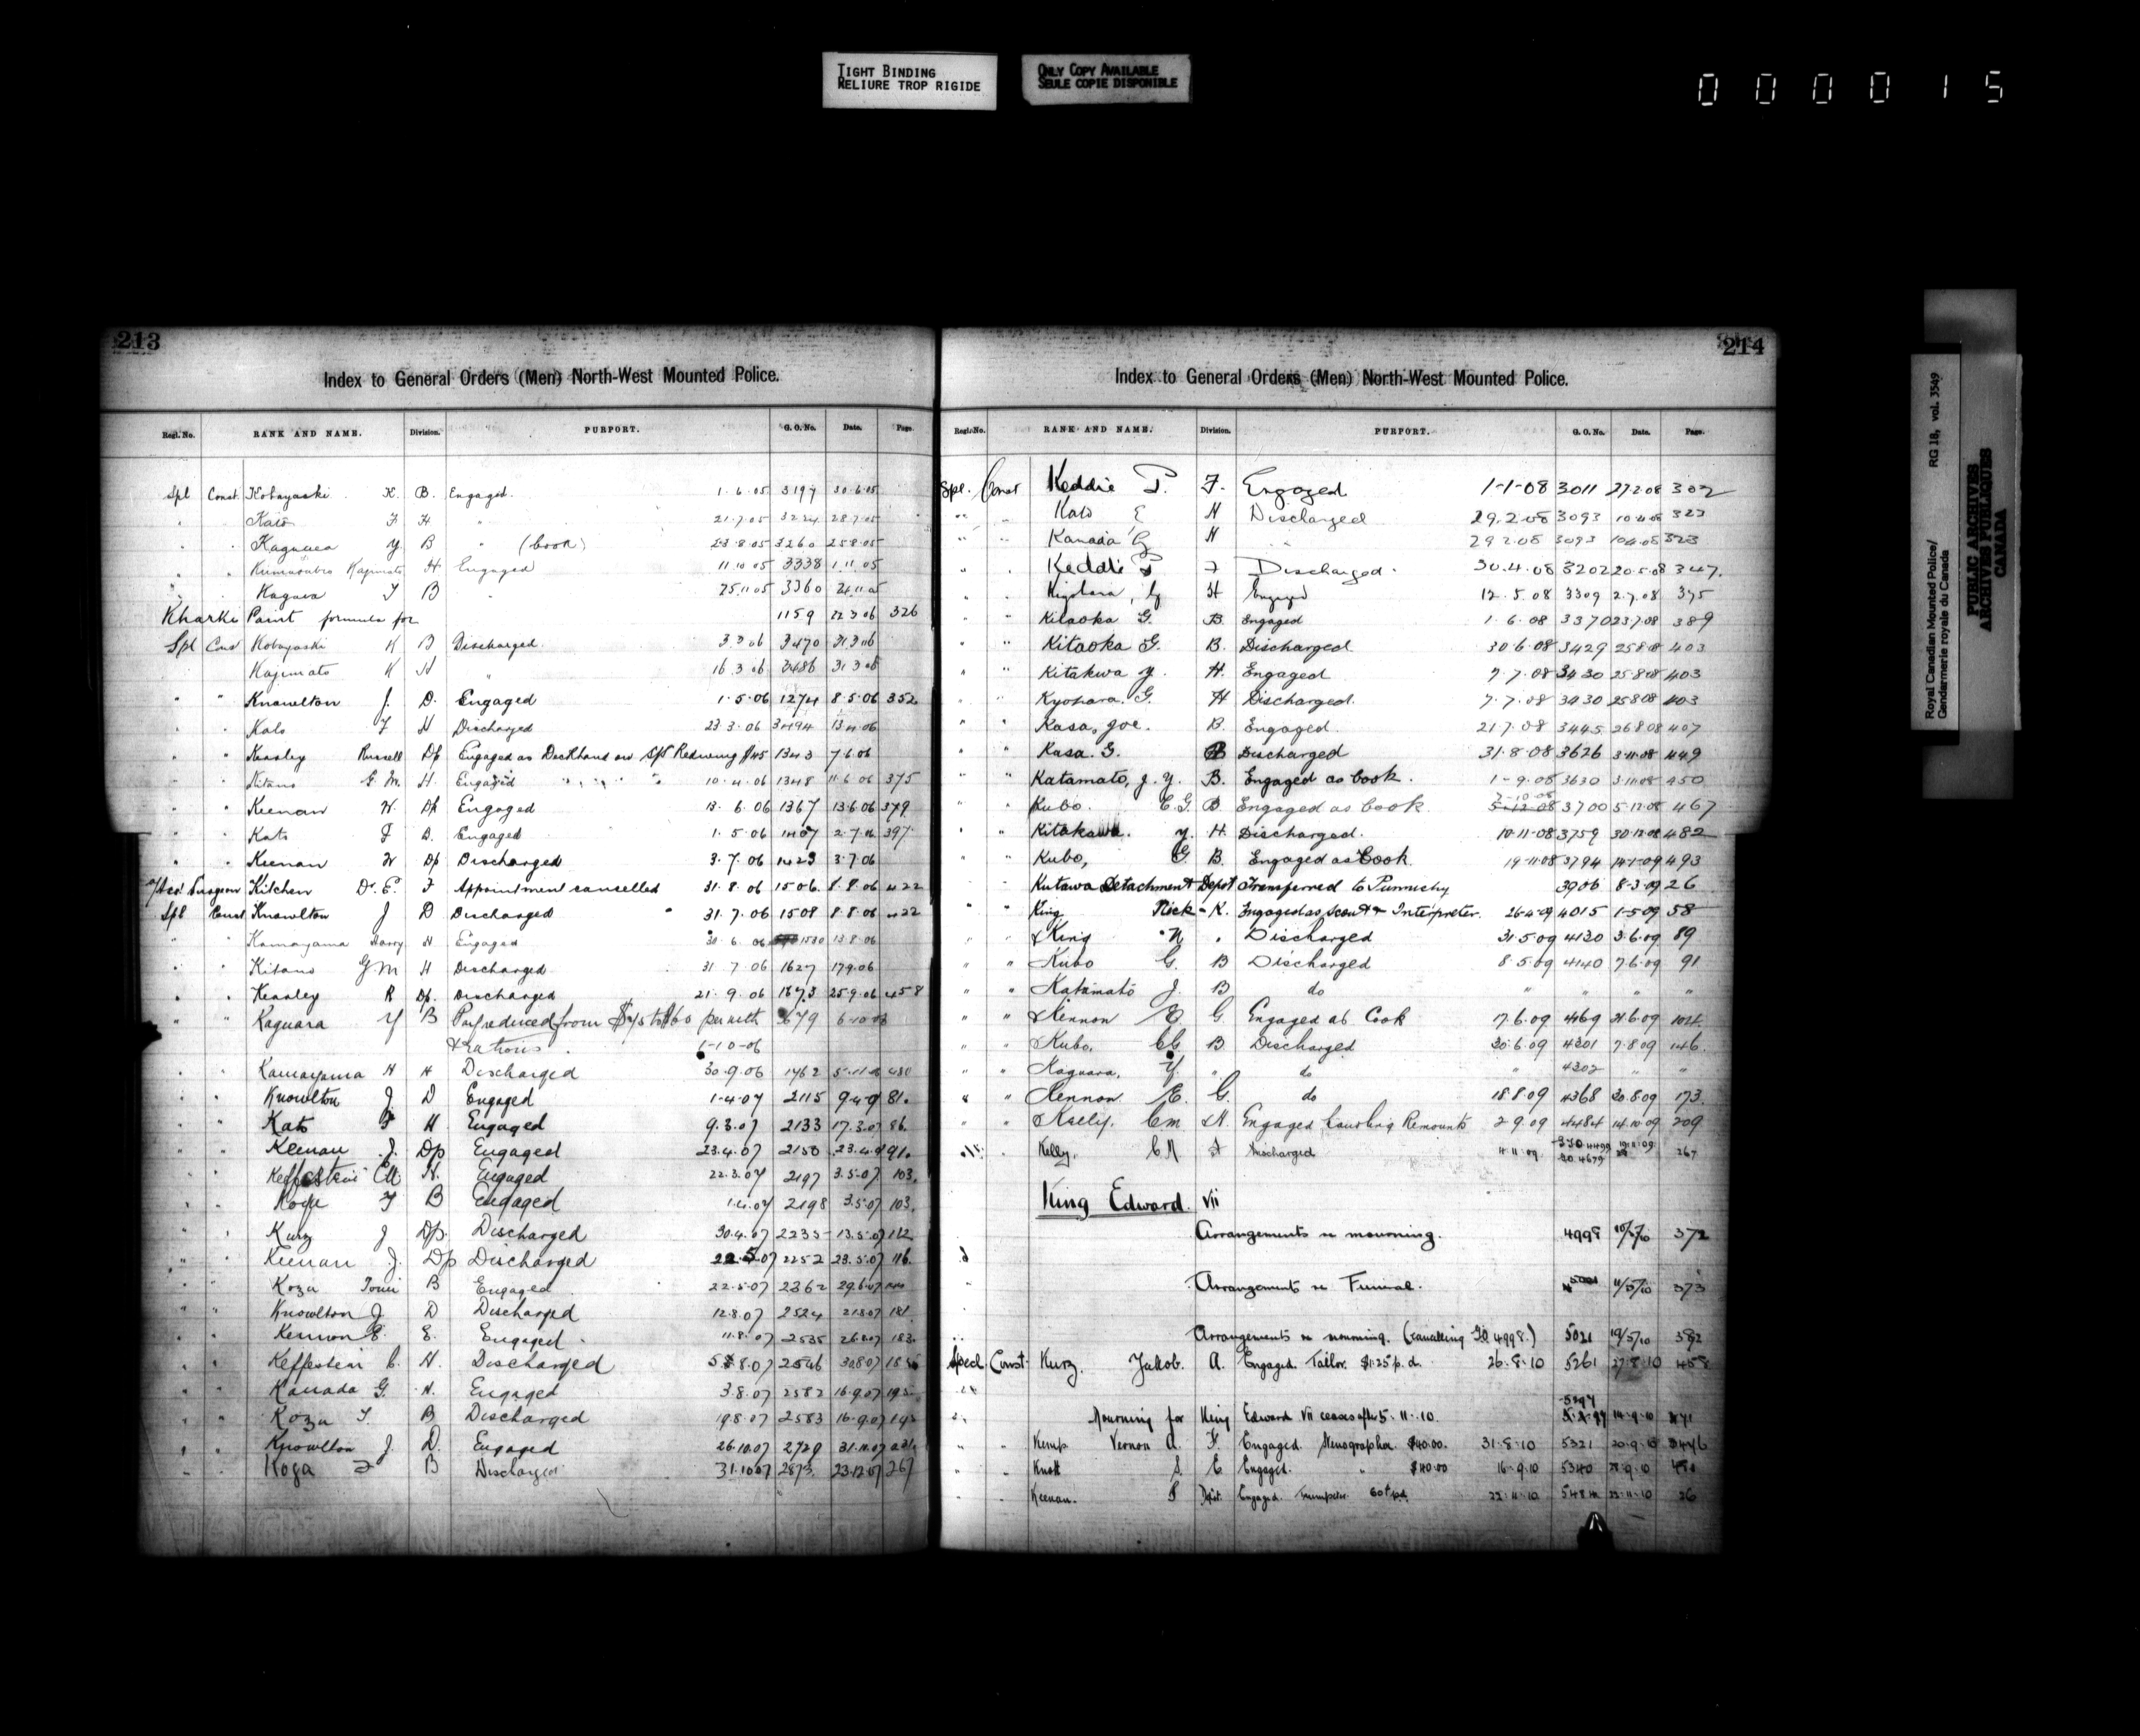 TIGHT BINDING
RELIURE TROP RIGIDE
ONLY COPY AVAILABLE
SEULE COPIE DISPONIBLE
000015
213
Index to General Orders (Men) North-West Mounted Police.
Regl. No. RANK AND NAME. Division. PURPORT. G. O. No. Date. Page.
Spl Const. Kobayashi K. B. Engaged. 1.6.05 3197 30.6.05
Kato F H " 21.7.05 3224 28.7.05
Kaguara Y B " (Cook) 23.8.05 3260 25.8.05
Kumasabro Kajimato H Engaged 11.10.05 3338 1.11.05
Kagawa T B " 25.11.05 3360 24.11.05
Kharki Paint formula for 1159 22.3.06 326
Spl Const Kobayashi K B Discharged. 3.3.06 3470 31.3.06
Kajimato K H " 16.3.06 3486 31.3.06
" " Knowlton J. D. Engaged 1.5.06 1274 8.5.06 352
Kato F H Discharged 23.3.06 3494 13.4.06
" Keasley Russell Dp Engaged as Deckhand on 1343 7.6.06
Kitano G. M. H. Engaged 10.4.06 1348 11.6.06 375
" " Keenan W Dp Engaged 13.6.06 1367 13.6.06 379
" Kato F D. Engaged 1.5.06 1407 2.7.06 397
" " Keenan W Dp Discharged 3.7.06 1423 3.7.06
Surgeon Kitchen D. E. F Appointment cancelled 31.8.06 1506. 8.8.06 422
Spl Const Knowlton J D Discharged 31.7.06 1508 8.8.06 422
" Kamayama Harry H Engaged 30.6.06 1530 13.8.06
" Kitano G M H Discharged 31.7.06 1627 17.9.06
" " Keasley R Dp. Discharged 21.9.06 1673 25.9.06 458
" " Kaguara Y B Pay reduced from $75 to $60 per mth 3679 6-10-06
& rations. 1-10-06
Kamayama H H Discharged 30.9.06 1762 5.11.06
" " Knowlton J D Engaged 1.4.07 2115 9.4.07 81.
" " Kato F H. Engaged 9.3.07 2133 17.3.07 86.
" " Keenan J. Dp Engaged 23.4.07 2150 23.4.07 91.
Keffestein H. Engaged 22.3.07 2197 3.5.07 103.
" " Koga T B Engaged 1.4.07 2198 3.5.07 103.
" Kurz J Dp. Discharged 30.4.07 2235 13.5.07 112
" Keenan J. Dp Discharged 22.5.07 2252 23.5.07 116.
" " Koza Tomi B Engaged 22.5.07 2362 29.6.07
" " Knowlton J. D Discharged 12.8.07 2524 21.8.07 181.
" " Kennon E. E. Engaged. 11.8.07 2535 26.8.07 183.
" " Keffestein C. H. Discharged 2546 30.8.07
" " Kanada G. H. Engaged 3.8.07 2582 16.9.07 195
" " Koza T. B Discharged 19.8.07 2583 16.9.07 195
" " Knowlton J. D. Engaged 26.10.07 2729 31.10.07
Koga T B Discharged 31.10.07 2873 23.12.07 267
214
Index to General Orders (Men) North-West Mounted Police.
Regl. No. RANK AND NAME. Division. PURPORT. G. O. No. Date. Page.
Spl. Const Keddie P. F. Engaged 1-1-08 3011 27.2.08 302
" " Kato E H Discharged 29.2.08 3093 10.4.08 323
" " Kanada G H " 29.2.08 3093 10.4.08 323
" . Keddie P F Discharged. 30.4.08 3202 20.5.08 347.
" " Kiyohara, G H Engaged 12.5.08 3309 2.7.08 375
" " Kitaoka G. B. Engaged 1.6.08 3370 23.7.08 389
" " Kitaoka G. B. Discharged 30.6.08 3429 25.8.08 403
" " Kitakwa Y. H. Engaged 7.7.08 3430 25.8.08 403
" " Kyohara. G. H Discharged. 7.7.08 3430 25.8.08 403
" " Kasa, Joe. B. Engaged. 21.7.08 3445 26.8.08 407
" " Kasa. G. B Discharged 31.8.08 3626 3.11.08 449
" " Katamato, J. Y. B. Engaged as Cook. 1-9.08 3630 3.11.08 450
" " Kubo. C. G. B. Engaged as Cook. 3700 5.12.08 467
" " Kitakawa. Y. H. Discharged. 10.11.08 3759 30.12.08 482
" " Kubo, G. B. Engaged as Cook. 19.11.08 3794 14.1.09 493
Kutawa Detachment Depot Transferred to Punnichy 3906 8-3-09 26
" " King Nick K. Engaged as Scout & Interpreter. 26.4.09 4015 1-5-09 58
" King N " Discharged 31.5.09 4130 3.6.09 89
" " Kubo G. B Discharged 8.5.09 4140 7.6.09 91
" " Katamato J. B do " " " "
" " Kennon E. G. Engaged as Cook 17.6.09 4169 21.6.09 104.
" " Kubo. C G. B. Discharged 30.6.09 4301 7.8.09 146.
" " Kaguara, Y. " do " 4302 " "
" " Kennon E. G. do 18.8.09 4368 20.8.09 173.
" " Kielly. C M H. Engaged handling Remounts 2.9.09 4484 14.10.09 209
Kelly. C N F Discharged 11.11.09 267
King Edward. VII
Arrangements re mourning. 4998 10/5/10 372
Arrangements re Funeral. 11/5/10 373
Arrangements re mourning. (cancelling GO. 4998.) 5021 19/5/10 382
Specl Const. Kurz. Jakob. A. Engaged. Tailor. $1.25 p.d. 26.8.10 5261 27.8.10 458
Mourning for King Edward VII ceases after 5.11.10. 5297 14.9.10 471
" " Kemp. Vernon A. F. Engaged. Stenographer $40.00. 31.8.10 5321 20.9.10
" " Knott S. E Engaged. " $40.00 16.9.10 5340 28.9.10
Keenan. Dept. Engaged. Trumpeter. 60¢ p.d. 22.11.10 22.11.10 26
Royal Canadian Mounted Police/
Gendarmerie royale du Canada
RG 18, vol. 3549
PUBLIC ARCHIVES
ARCHIVES PUBLIQUES
CANADA